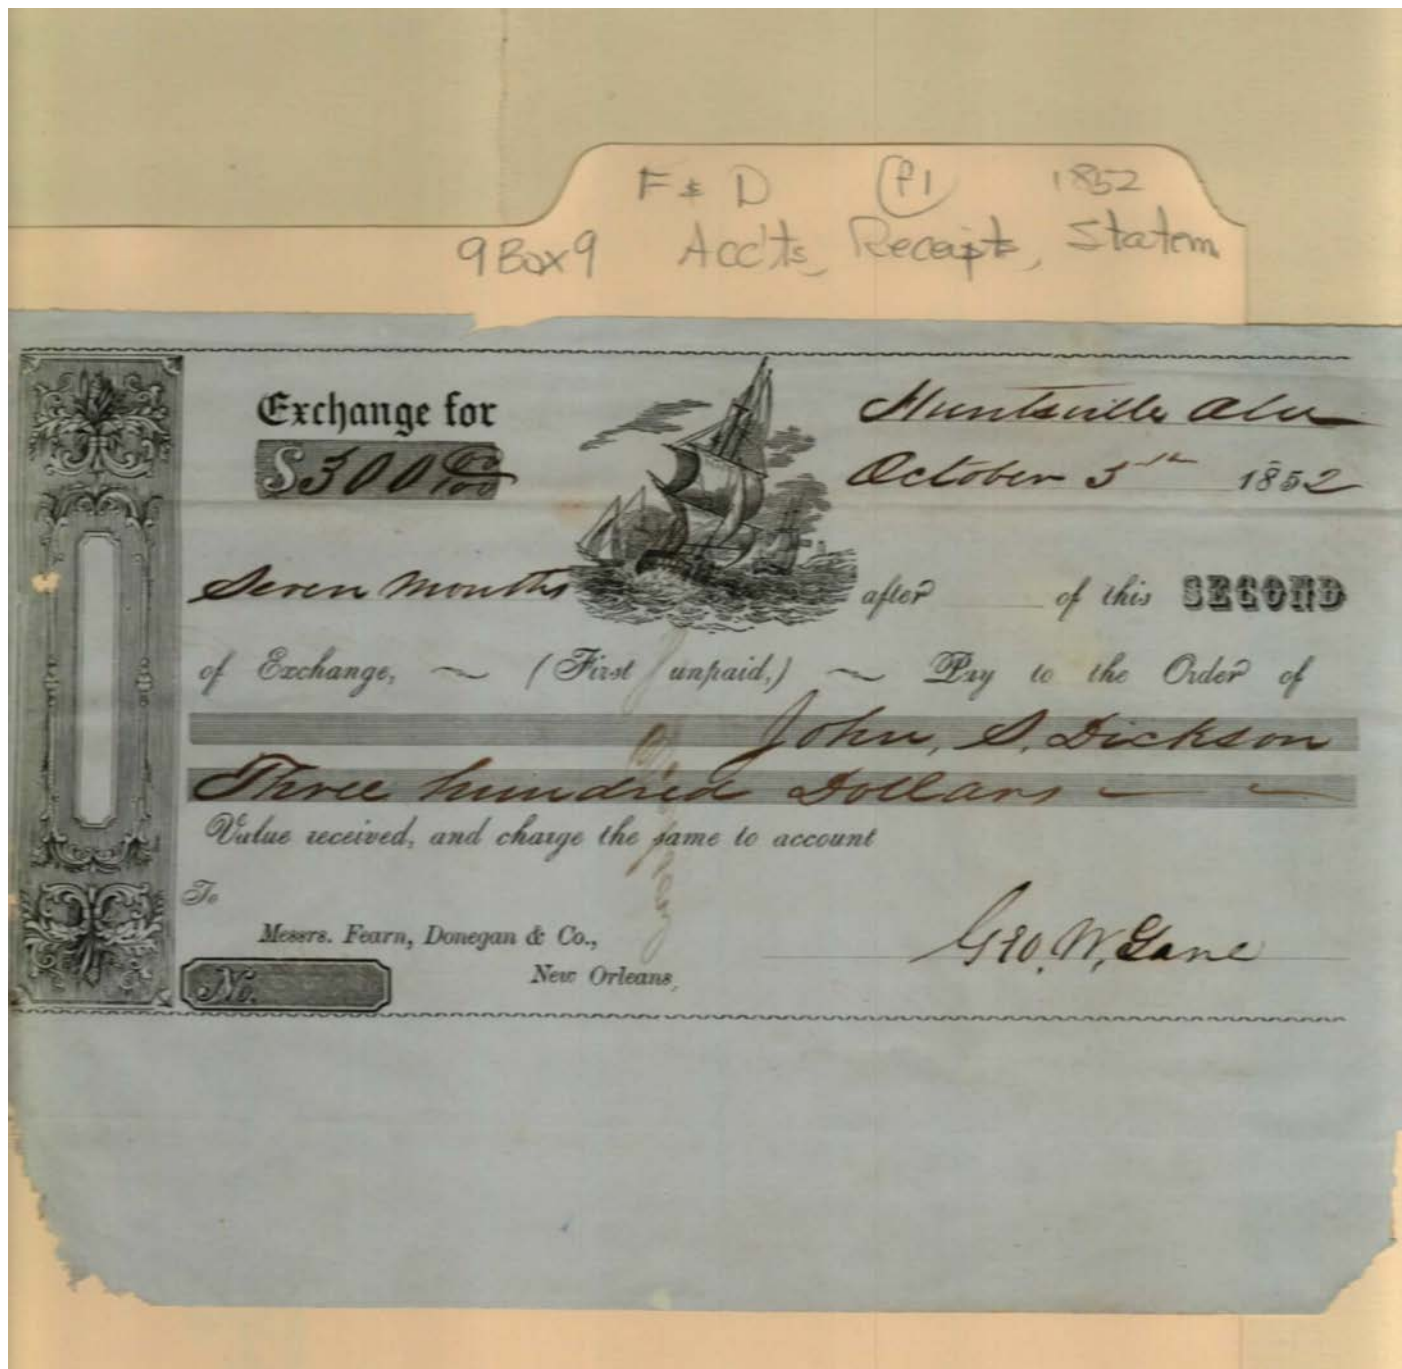 F & D P1 1852
9 Box 9 Acc'ts, Receipts, Statem
Exchange for
$300 00/100
Huntsville Ala
October 5th 1852
Seven months after of this SECOND
of Exchange, (First unpaid,) Pay to the Order of
John, S. Dickson
Three hundred Dollars
Value received, and charge the same to account
To
Messrs. Fearn, Donegan & Co.,
New Orleans,
No.
Geo. W. Lane